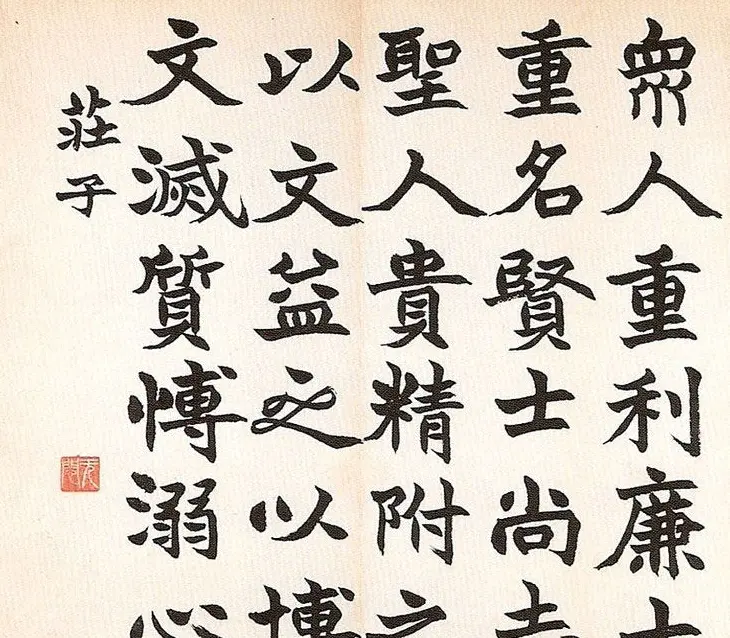 衆人重利廉
重名賢士尚
聖人貴精附之
以文益之以博
文滅質愽溺心
莊子